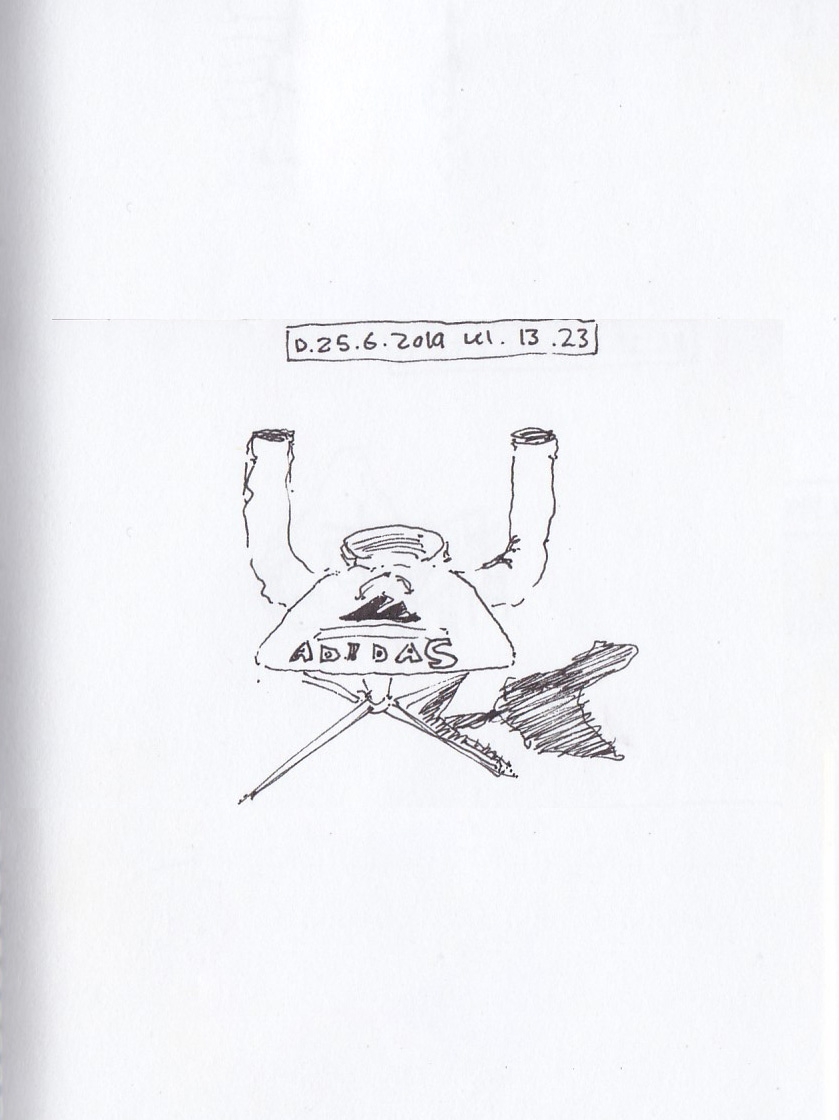 D.25.6.2019 kl. 13.23
ADIDAS